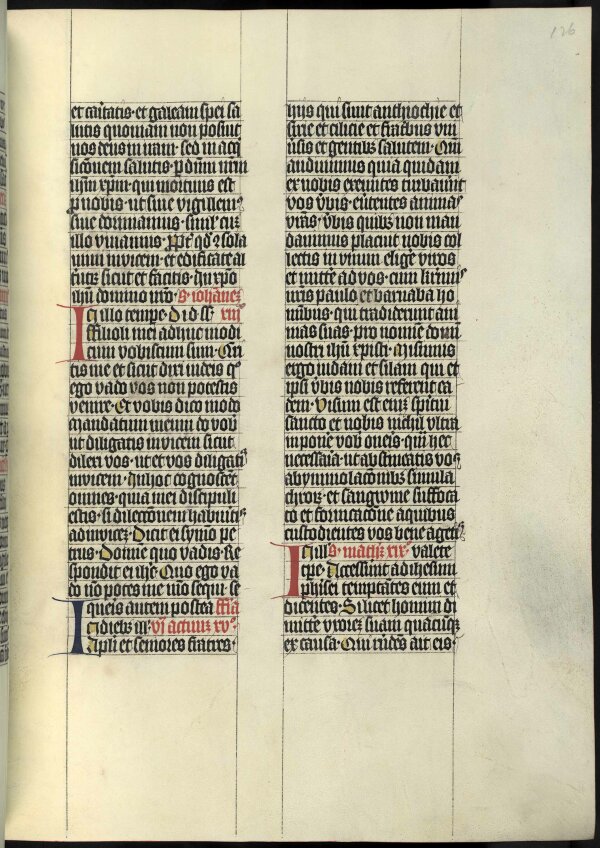 126
et caritatis · et galeam spei sa
lutis quoniam non posuit
nos deus in iram · sed in acq̄
sicōnem salutis · p dn̄m nr̄m
ihm xpm · qui mortuus est
p nobis · ut siue vigillem⁹
siue dormiamus · simul cū
illo viuamus · ppt̄ qd 2sola
mini invicem · et edificate al
t̄utꝝ sicut et facitis · In xp̄o
ihū domino nr̄o · s · iohānez
In illo tempe · Dixit ihs̄ xiij
ffilioli mei adhuc modi
cum vobiscum sum · Que
tis me et sicut dixi iudeis q°
ego vado vos non potestis
venire · Et vobis dico modo
Mandatum nouum do vob
ut diligatis invicem sicut
dilexi vos · ut et vos diligatis
invicem · In hoc cognoscet
omnes · quia mei discipuli
estis · si dilectōnem habuitis
adinvicez · Dicit ei symō pe
trus · Domine quo vadis · Re
spondit ei ihs̄ · Quo ego va
do nō potes me mō sequi se
queis autem postea ffīa
In diebꝫ ill · vj actuuꝫ xv°
Apli et seniores fratres ·
hijs qui sunt anthiochie et
sirie et cilicie et fratribus
ex gentibꝫ salutem · Qm̄
audiuimus quia quidam
ex nobis exeuntes turbauerūt
vos v̄bis · eūtentes animas
vr̄as · v̄bis quibꝫ non man
dauimus placuit nobis col
lectis in vnum elige viros
et mitt̄e ad vos · cum kr̄imis
nr̄is paulo et barnaba ho
minibus · qui tradiderunt ani
mas suas · pro nomine domini
nostri ihū xpisti · Misimus
ergo iudam et silam qui et
ipsi v̄bis nobis referent ea
dem · Visum est enī spiritui
sancto et nobis nichil vltra
inponē vob oneis · qm̄ hec
necessaria · ut abstineatis vos
ab ymmolatōnibꝫ simula
chroꝝ · et sangwine suffoca
to et fornicacōne a quibus
custodientes vos bene agetis
In ill s · mathꝫ xix · valete
tpe · Accesserūt ad ihesum
pharisei temptātes eum et
dicentes · Si licet homini di
mitte vxorez suam quacūqꝫ
ex causa · Qui rn̄des ait eis ·